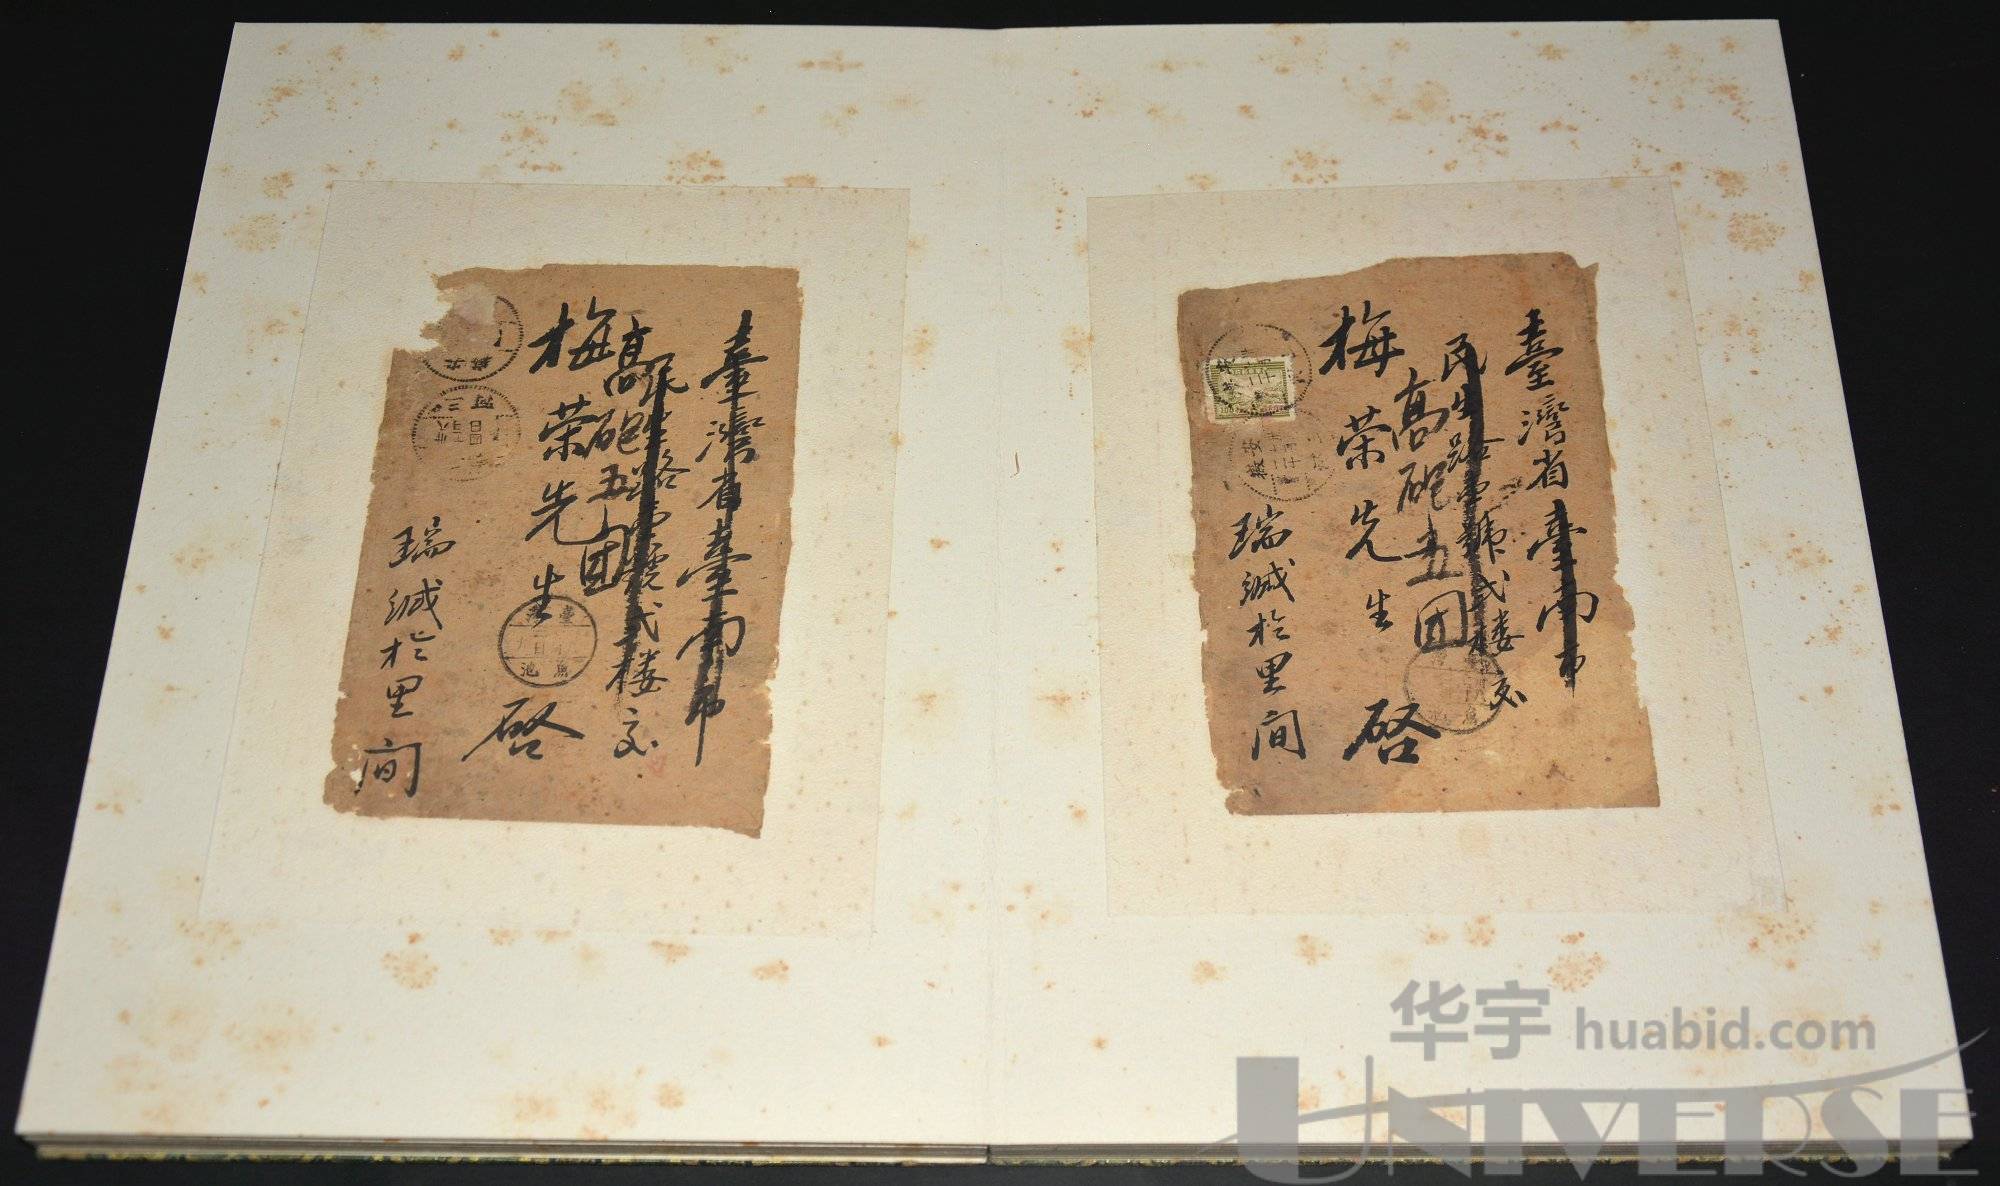 臺灣省臺南市
民生路壹號弍楼交
高砲五団
梅荣先生 啓
瑞缄於里间
臺灣省臺南市
民生路壹號弍楼交
高砲五团
梅荣先生 啓
瑞缄於里间
华宇 huabid.com
UNIVERSE